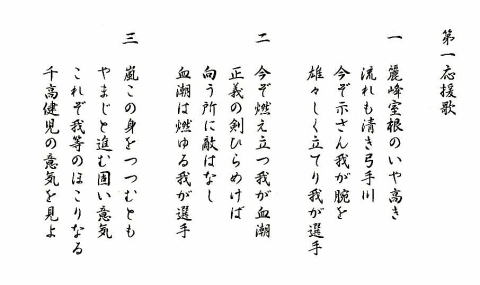 第一応援歌
一 麗峰室根のいや高き
流れも清き弓手川
今ぞ示さん我が腕を
雄々しく立てり我が選手
二 今ぞ燃え立つ我が血潮
正義の剣ひらめけば
向う所に敵はなし
血潮は燃ゆる我が選手
三 嵐この身をつつむとも
やまじと進む固い意気
これぞ我等のほこりなる
千高健児の意気を見よ